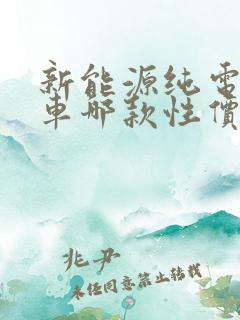 新能源纯電
車哪款性價
兆尹
未经同意禁止转载